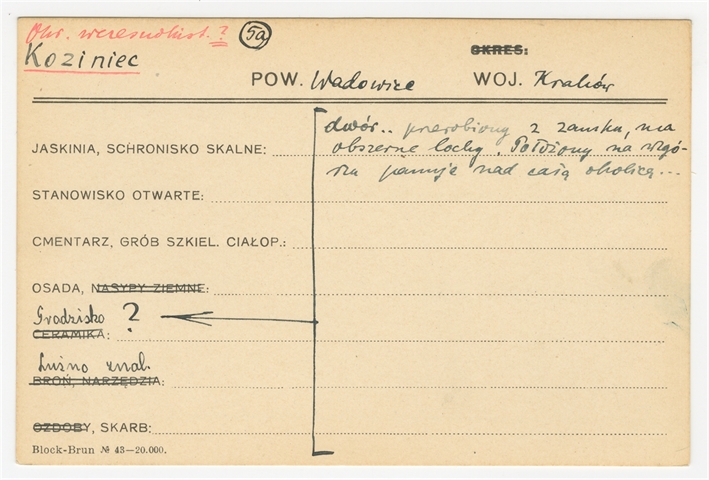 Okr. wczesnohist. ? 5a
Koziniec OKRES:
POW. Wadowice WOJ. Kraków
dwór.. przerobiony z zamku, ma
JASKINIA, SCHRONISKO SKALNE: obszerne lochy. Położony na wzgó-
rzu panuje nad całą okolicą...
STANOWISKO OTWARTE:
CMENTARZ, GRÓB SZKIEL. CIAŁOP.:
OSADA, NASYPY ZIEMNE:
Grodzisko ?
CERAMIKA:
Luźno znal.
BROŃ, NARZĘDZIA:
OZDOBY, SKARB:
Block-Brun № 43—20.000.